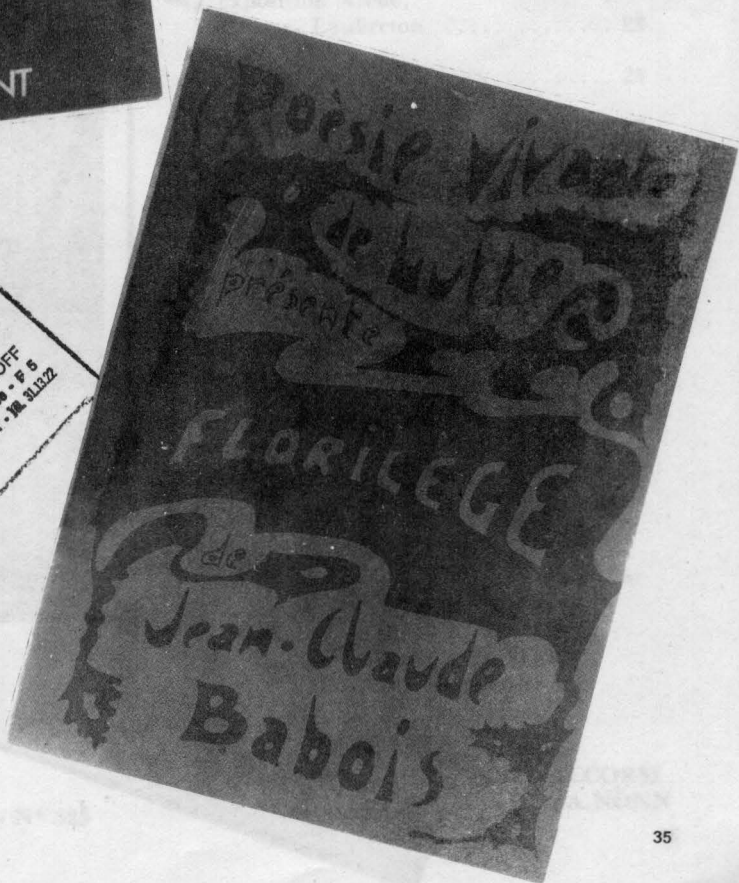 NT
OFF
- F 5
- Tél. 31.13.22
Poèsie vivante
de lutte
présente
FLORILEGE
de
Jean-Claude
Babois
35